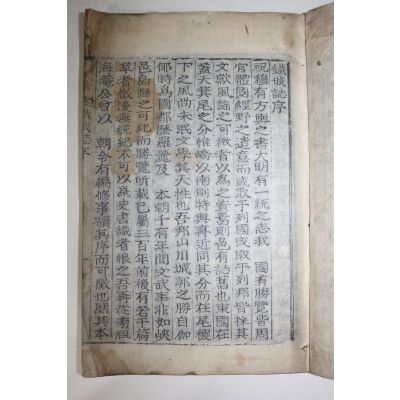 鐵城誌序
祝穆有方輿之書大明有一統之志我 國有勝覽皆周
官體國經野之遺意而或取于列國或取于列邦皆採其
文獻風土之可徵者以爲之責焉則邑有誌舊也東國在
蓋天箕尾之分惟嶠以南則特與齊近同其分而在尾稷
下之風尚未泯文學其天性也吾邦山川城郭之勝自伽
倻時爲國都歷羅麗及 本朝千有年間文武事非如峽
邑島縣之可比而勝覽所載已屬三百年前後有若干篇
草者散漫無統紀不可以爲史書識者恨之吾再從高祖
海菴公曾以 朝令有編修事讀其序而可徵也然其本
鐵城誌序